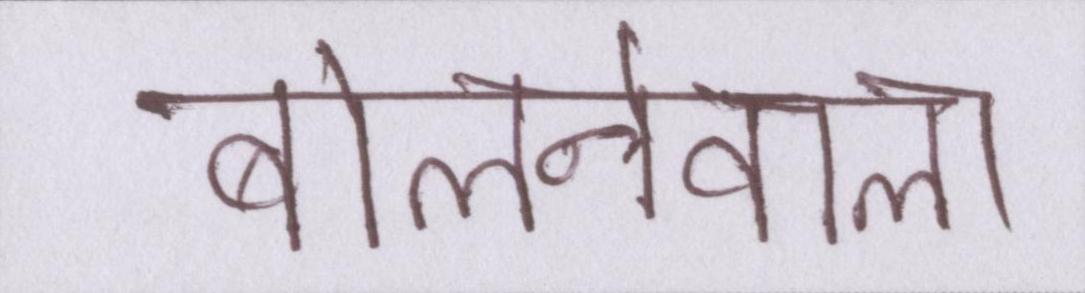 बोलनेवाला